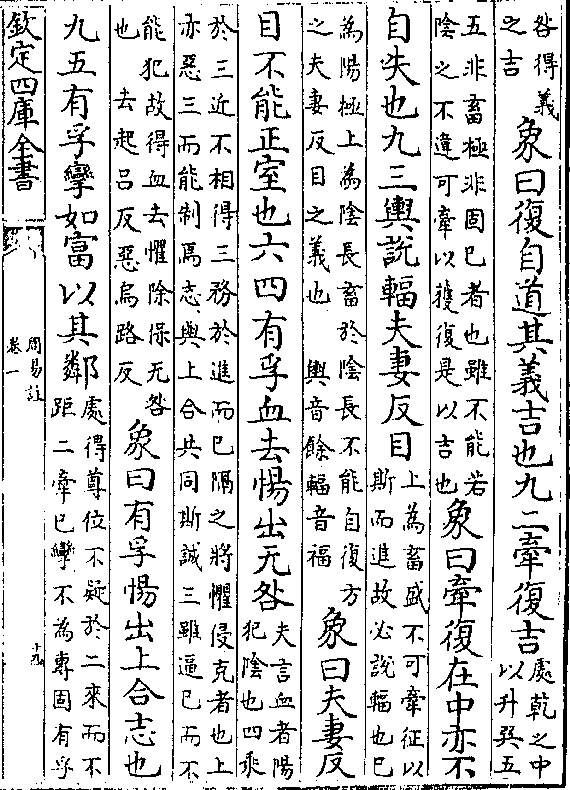 咎得義
之吉
象曰復自道其義吉也九二牽復吉
處乾之中
以升巽五
五非畜極非固已者也雖不能若
陰之不違可牽以獲復是以吉也
象曰牽復在中亦不
自失也九三輿說輻夫妻反目
上為畜盛不可牽征以
斯而進故必說輻也已
為陽極上為陰長畜於陰長不能自復方
之夫妻反目之義也 輿音餘輻音福
象曰夫妻反
目不能正室也六四有孚血去惕出无咎
夫言血者陽
犯陰也四乘
於三近不相得三務於進而已隔之將懼侵克者也上
亦惡三而能制焉志與上合共同斯誠三雖逼已而不
能犯故得血去懼除保无咎
也 去起呂反惡烏路反
象曰有孚惕出上合志也
九五有孚攣如富以其鄰
處得尊位不疑於二來而不
距二牽已攣不為專固有孚
欽定四庫全書
周易註
卷一
十九